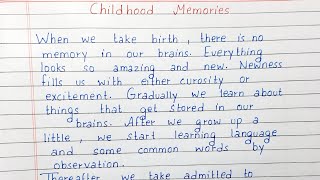 Childhood Memories
When we take birth, there is no
memory in our brains. Everything
looks so amazing and new. Newness
fills us with either curosity or
excitement. Gradually we learn about
things that get stored in our
brains. After we grow up a
little, we start learning language
and some common words by
observation.
Thereafter we take admitted to